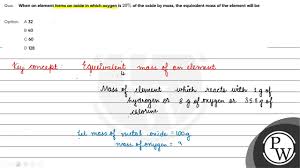 Ques. When an element forms an oxide in which oxygen is 20% of the oxide by mass, the equivalent mass of the element will be
Option:
A 32
B 40
C 60
D 128
Key concept : Equivalent mass of an element
Mass of element which reacts with 1 g of
hydrogen or 8 g of oxygen or 35.5 g of
chlorine
Let mass of metal oxide = 100g
mass of oxygen = ?
PW